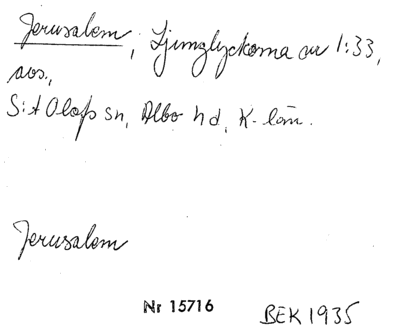 Jerusalem, Ljunglyckorna nr 1:33,
avs.,
S:t Olofs sn, Albo hd, K-län.
Jerusalem
Nr 15716 BEK 1935